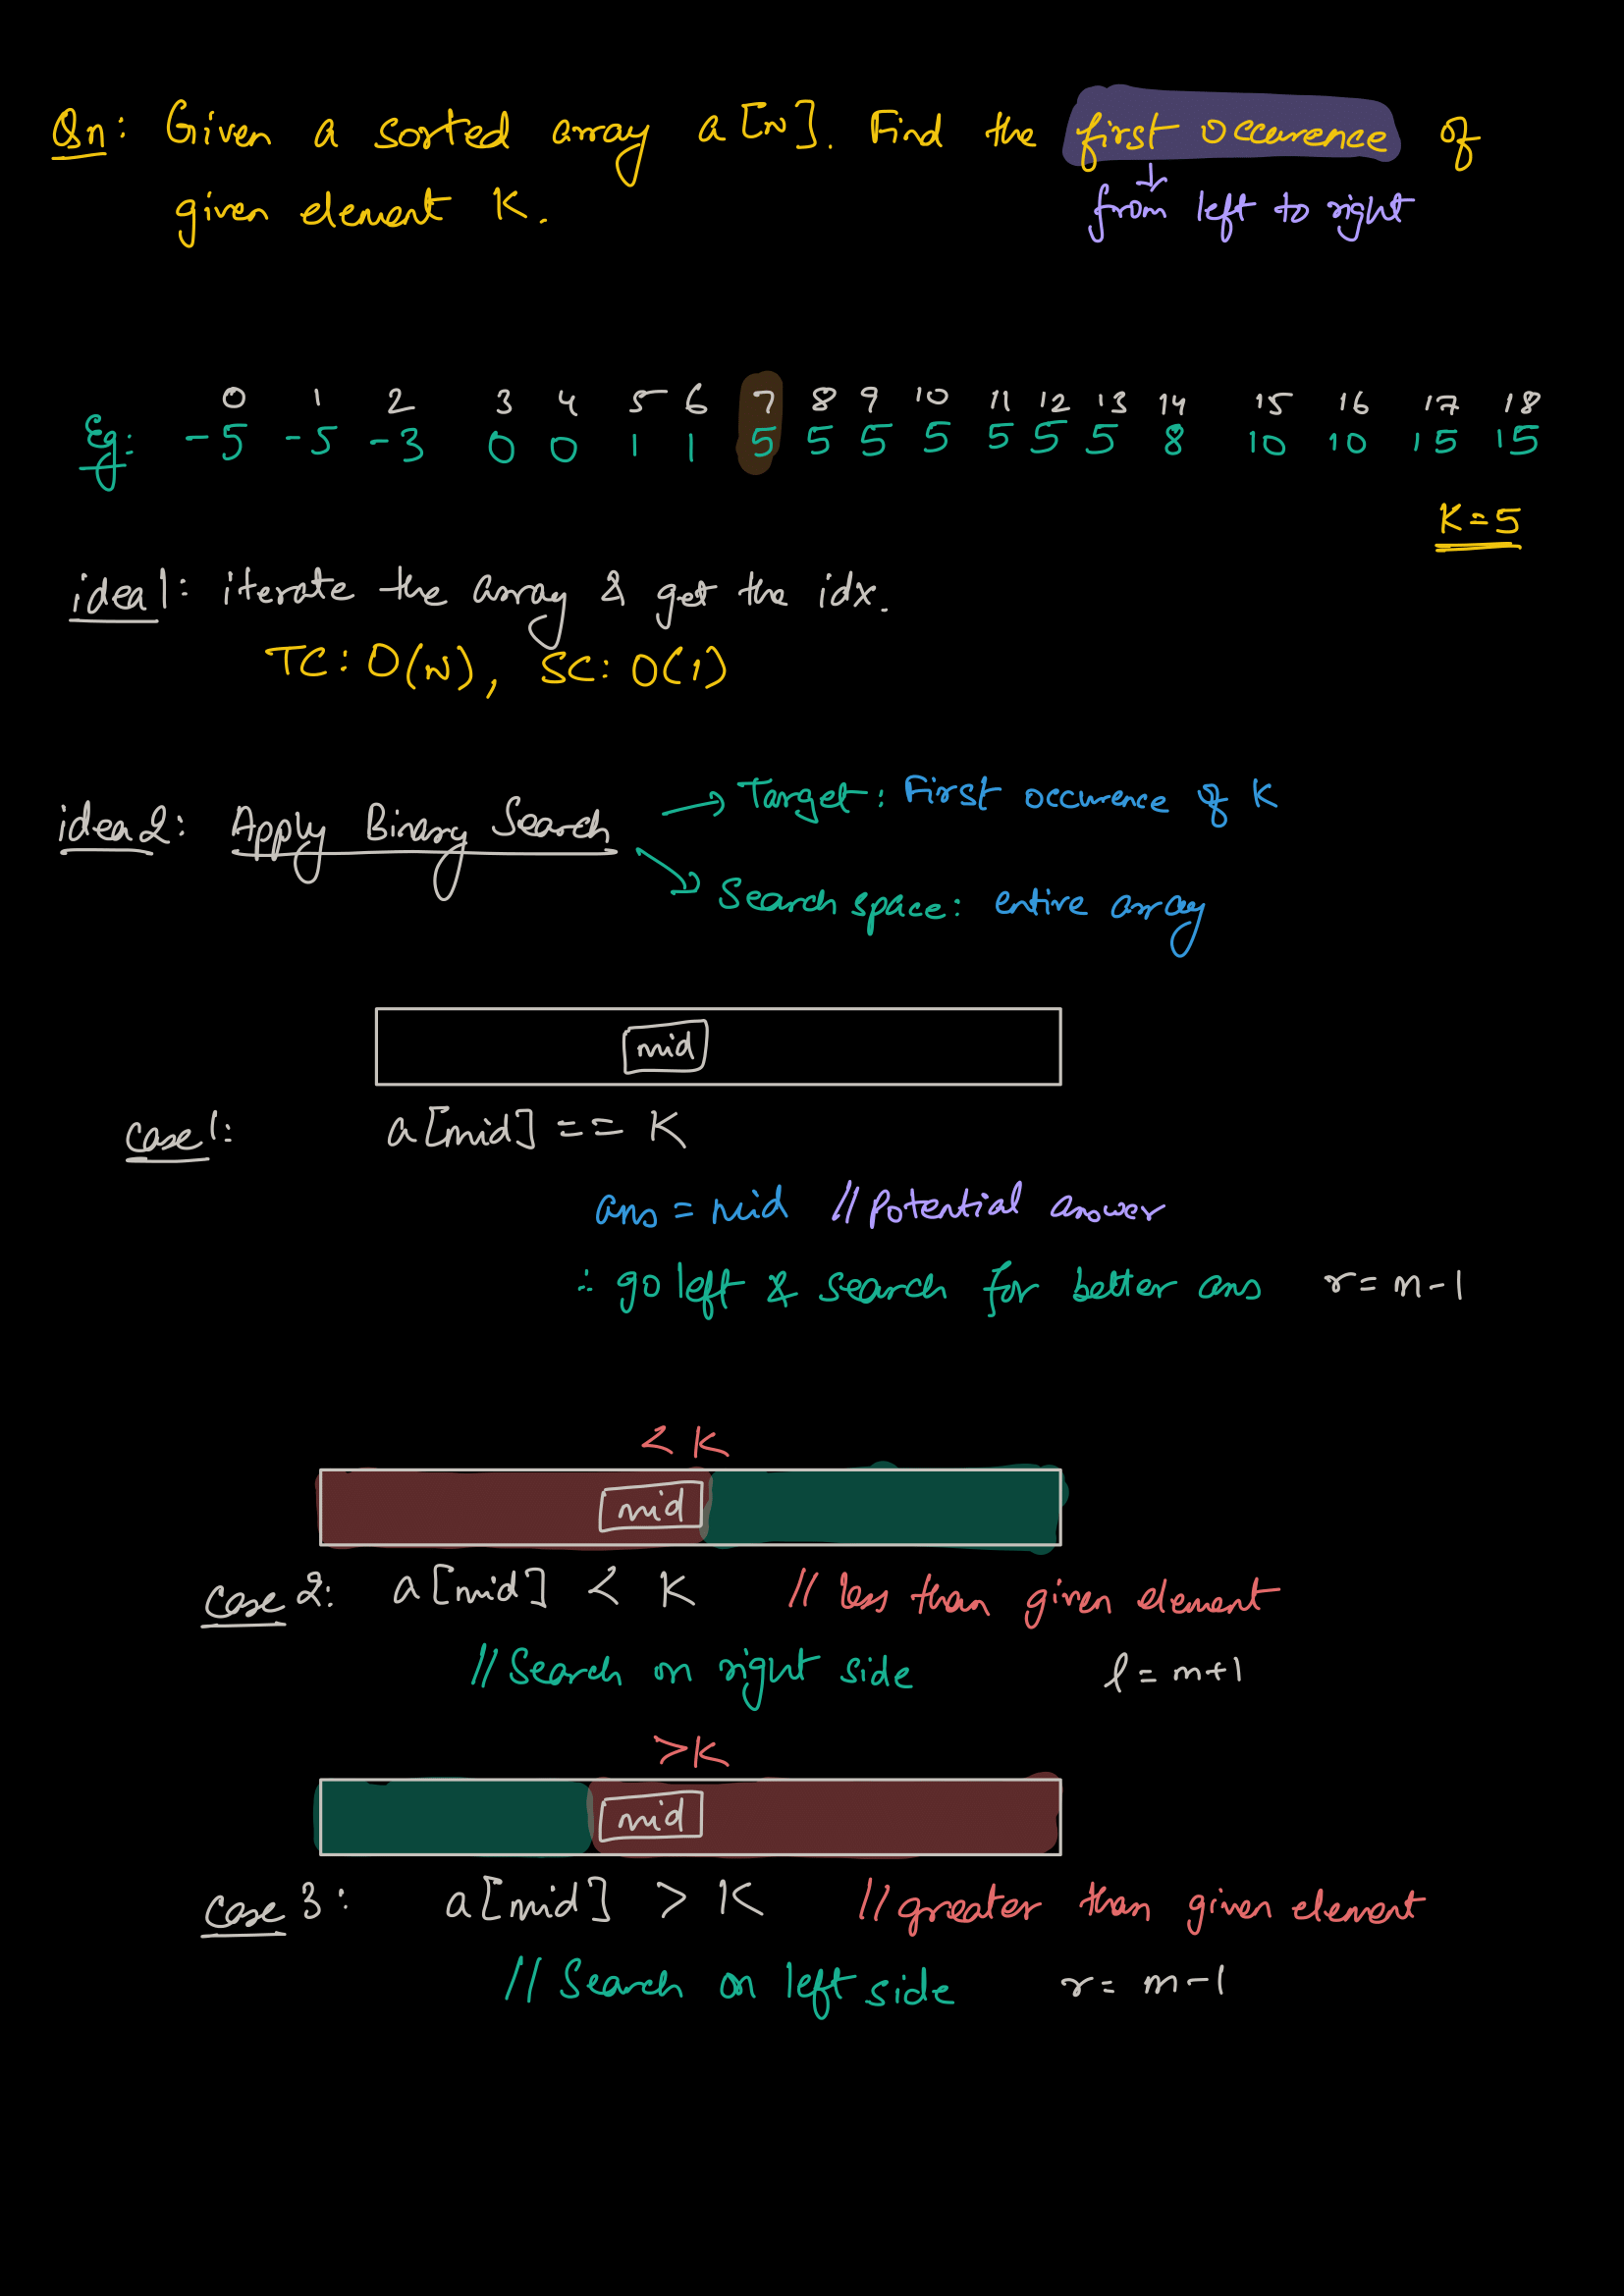 Qn: Given a sorted array a[N]. Find the first occurence of
given element K.
from left to right
0 1 2 3 4 5 6 7 8 9 10 11 12 13 14 15 16 17 18
Eg: -5 -5 -3 0 0 1 1 5 5 5 5 5 5 5 8 10 10 15 15
K=5
idea1: iterate the array & get the idx.
TC: O(N), SC: O(1)
idea2: Apply Binary Search
→ Target: First occurence of K
→ Search space: entire array
mid
case1: a[mid] == K
ans = mid // Potential answer
∴ go left & search for better ans r = m-1
< K
mid
case 2: a[mid] < K // less than given element
// Search on right side l = m+1
> K
mid
case 3: a[mid] > K // greater than given element
// Search on left side r = m-1